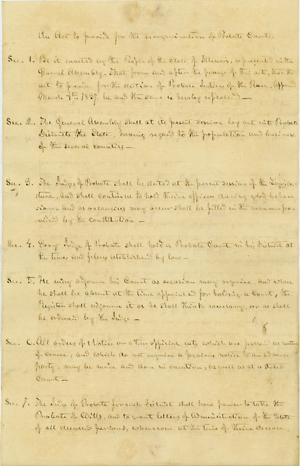 An Act to provide for the reorganization of Probate Courts.
Sec. 1. Be it enacted by the People of the State of Illinois, represented in the
General Assembly, That from and after the passage of this act, that the
act to provide for the election of Probate Justices of the Peace, approved
March 4th 1837, be and the same is hereby repealed —
Sec. 2. The General Assembly shall at its present session lay out into Probate
Districts the State, having regard to the population and business
of the several counties —
Sec. 3. The Judges of Probate shall be elected at the present session of the Legisla-
ture, and shall continue to hold their offices during good behav-
iour, and as vacancies may occur shall be filled in the manner pro-
vided by the constitution —
Sec. 4. Every Judge of Probate shall hold a Probate Court in his District at
the times and places determined by law —
Sec. 5. He may adjourn his Court as occasion may require, and when
he shall be absent at the time appointed for holding a Court, the
Register shall adjourn it as he shall think necessary, or as shall
be ordered by the Judge —
Sec. 6. All orders of Notice or other official acts which are passed as matters
of course, and which do not require a previous notice to an adverse
party, may be made and done in vacation, as well as at a stated
Court —
Sec. 7. The Judge of Probate for each District shall have power to take the
Probate of Wills, and to grant letters of Administration of the Estate
of all deceased persons, who were at the time of their decease,